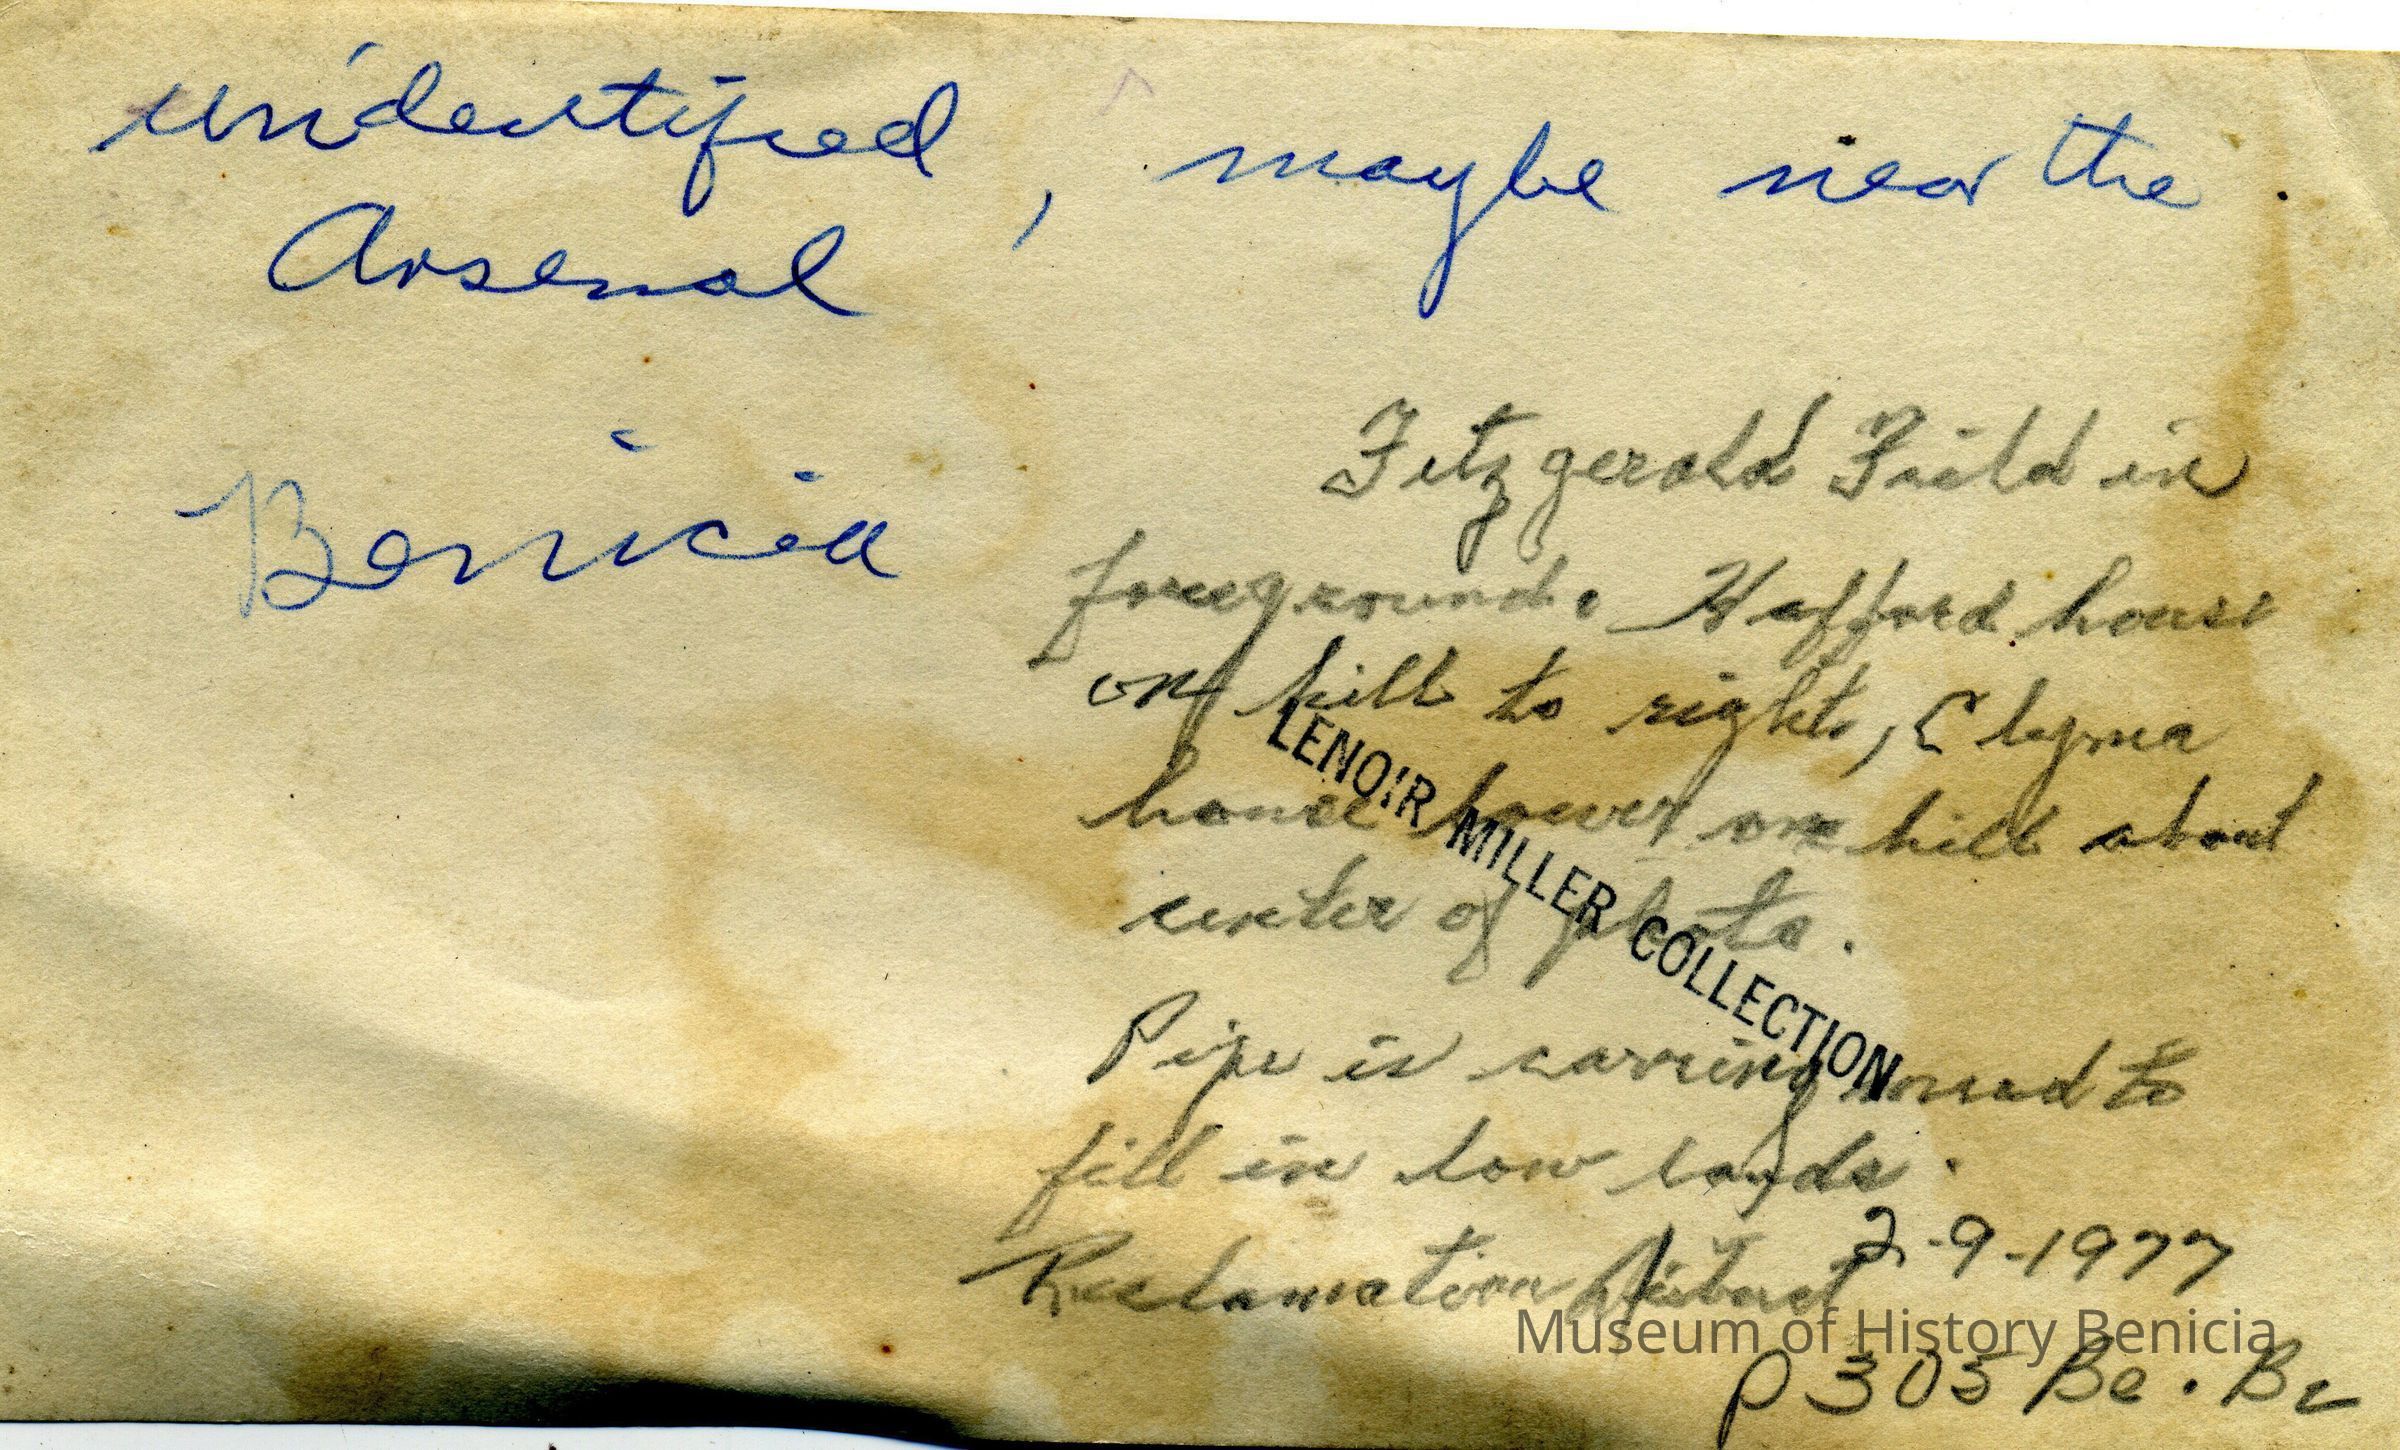 unidentified, maybe near the
Arsenal
Benicia
Fitzgerald Field in
foreground. Hafford house
on hill to right, Clyma
house lower on hill about
center of photo.
LENOIR MILLER COLLECTION
Pipe is carring mud to
fill in low lands.
Reclamation District
2-9-1977
Museum of History Benicia
P305 Be. Be